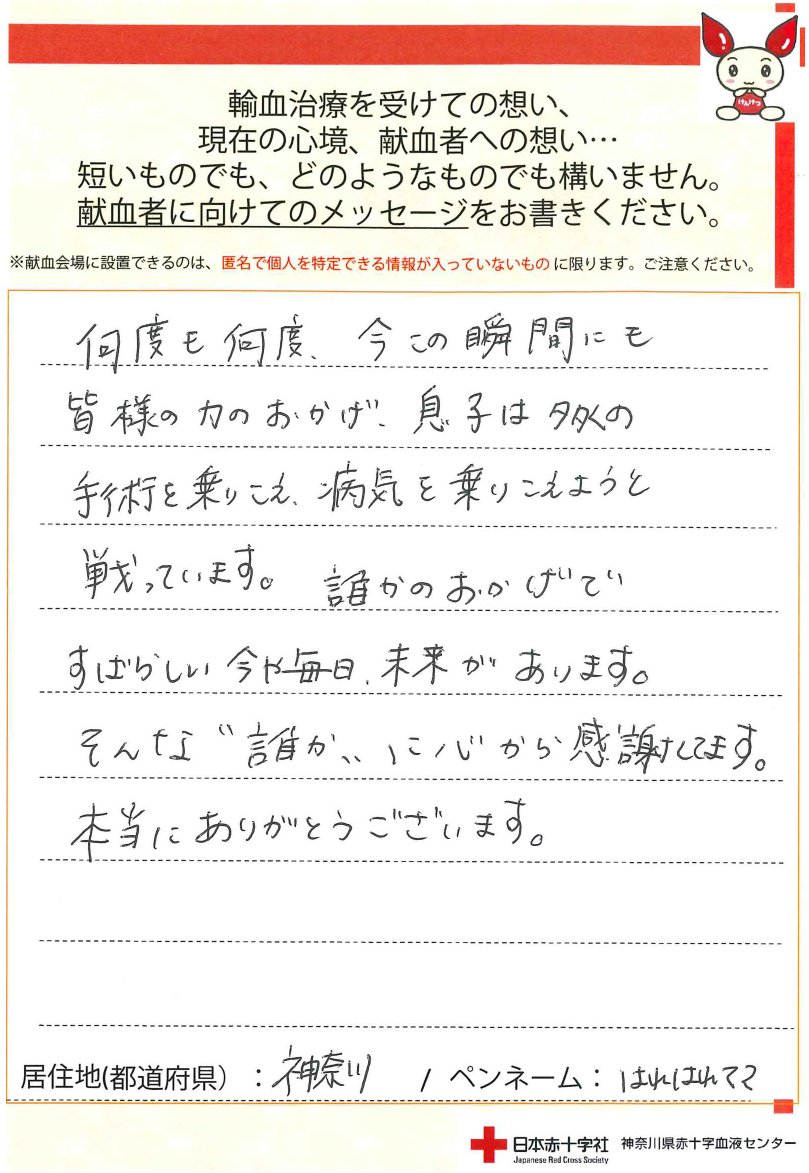 輸血治療を受けての想い、
現在の心境、献血者への想い…
短いものでも、どのようなものでも構いません。
献血者に向けてのメッセージをお書きください。
けんけつ
※献血会場に設置できるのは、匿名で個人を特定できる情報が入っていないものに限ります。ご注意ください。
何度も何度、今この瞬間にも
皆様の力のおかげで、息子は多くの
手術を乗りこえ、病気を乗りこえようと
戦っています。誰かのおかげで
すばらしい今や毎日、未来があります。
そんな"誰か"に心から感謝してます。
本当にありがとうございます。
居住地(都道府県):神奈川 / ペンネーム:はればれママ
日本赤十字社 神奈川県赤十字血液センター
Japanese Red Cross Society